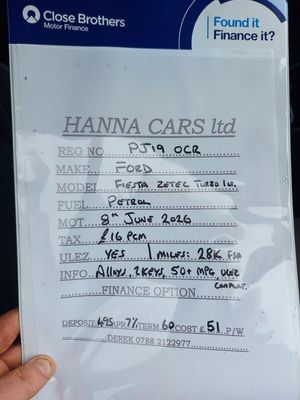 Close Brothers
Motor Finance
Found it
Finance it?
HANNA CARS ltd
REG NO PJ19 OCR
MAKE FORD
MODEL FIESTA ZETEC TURBO
FUEL PETROL
MOT 8TH JUNE 2026
TAX £16 PCM
ULEZ YES / MILES: 28K FSH
INFO ALLOYS, 2 KEYS, 50+ MPG, ULEZ
COMPLIANT
FINANCE OPTION
DEPOSIT £495 APR 7% TERM 60 COST £51 P/W
DEREK 0788 2122977